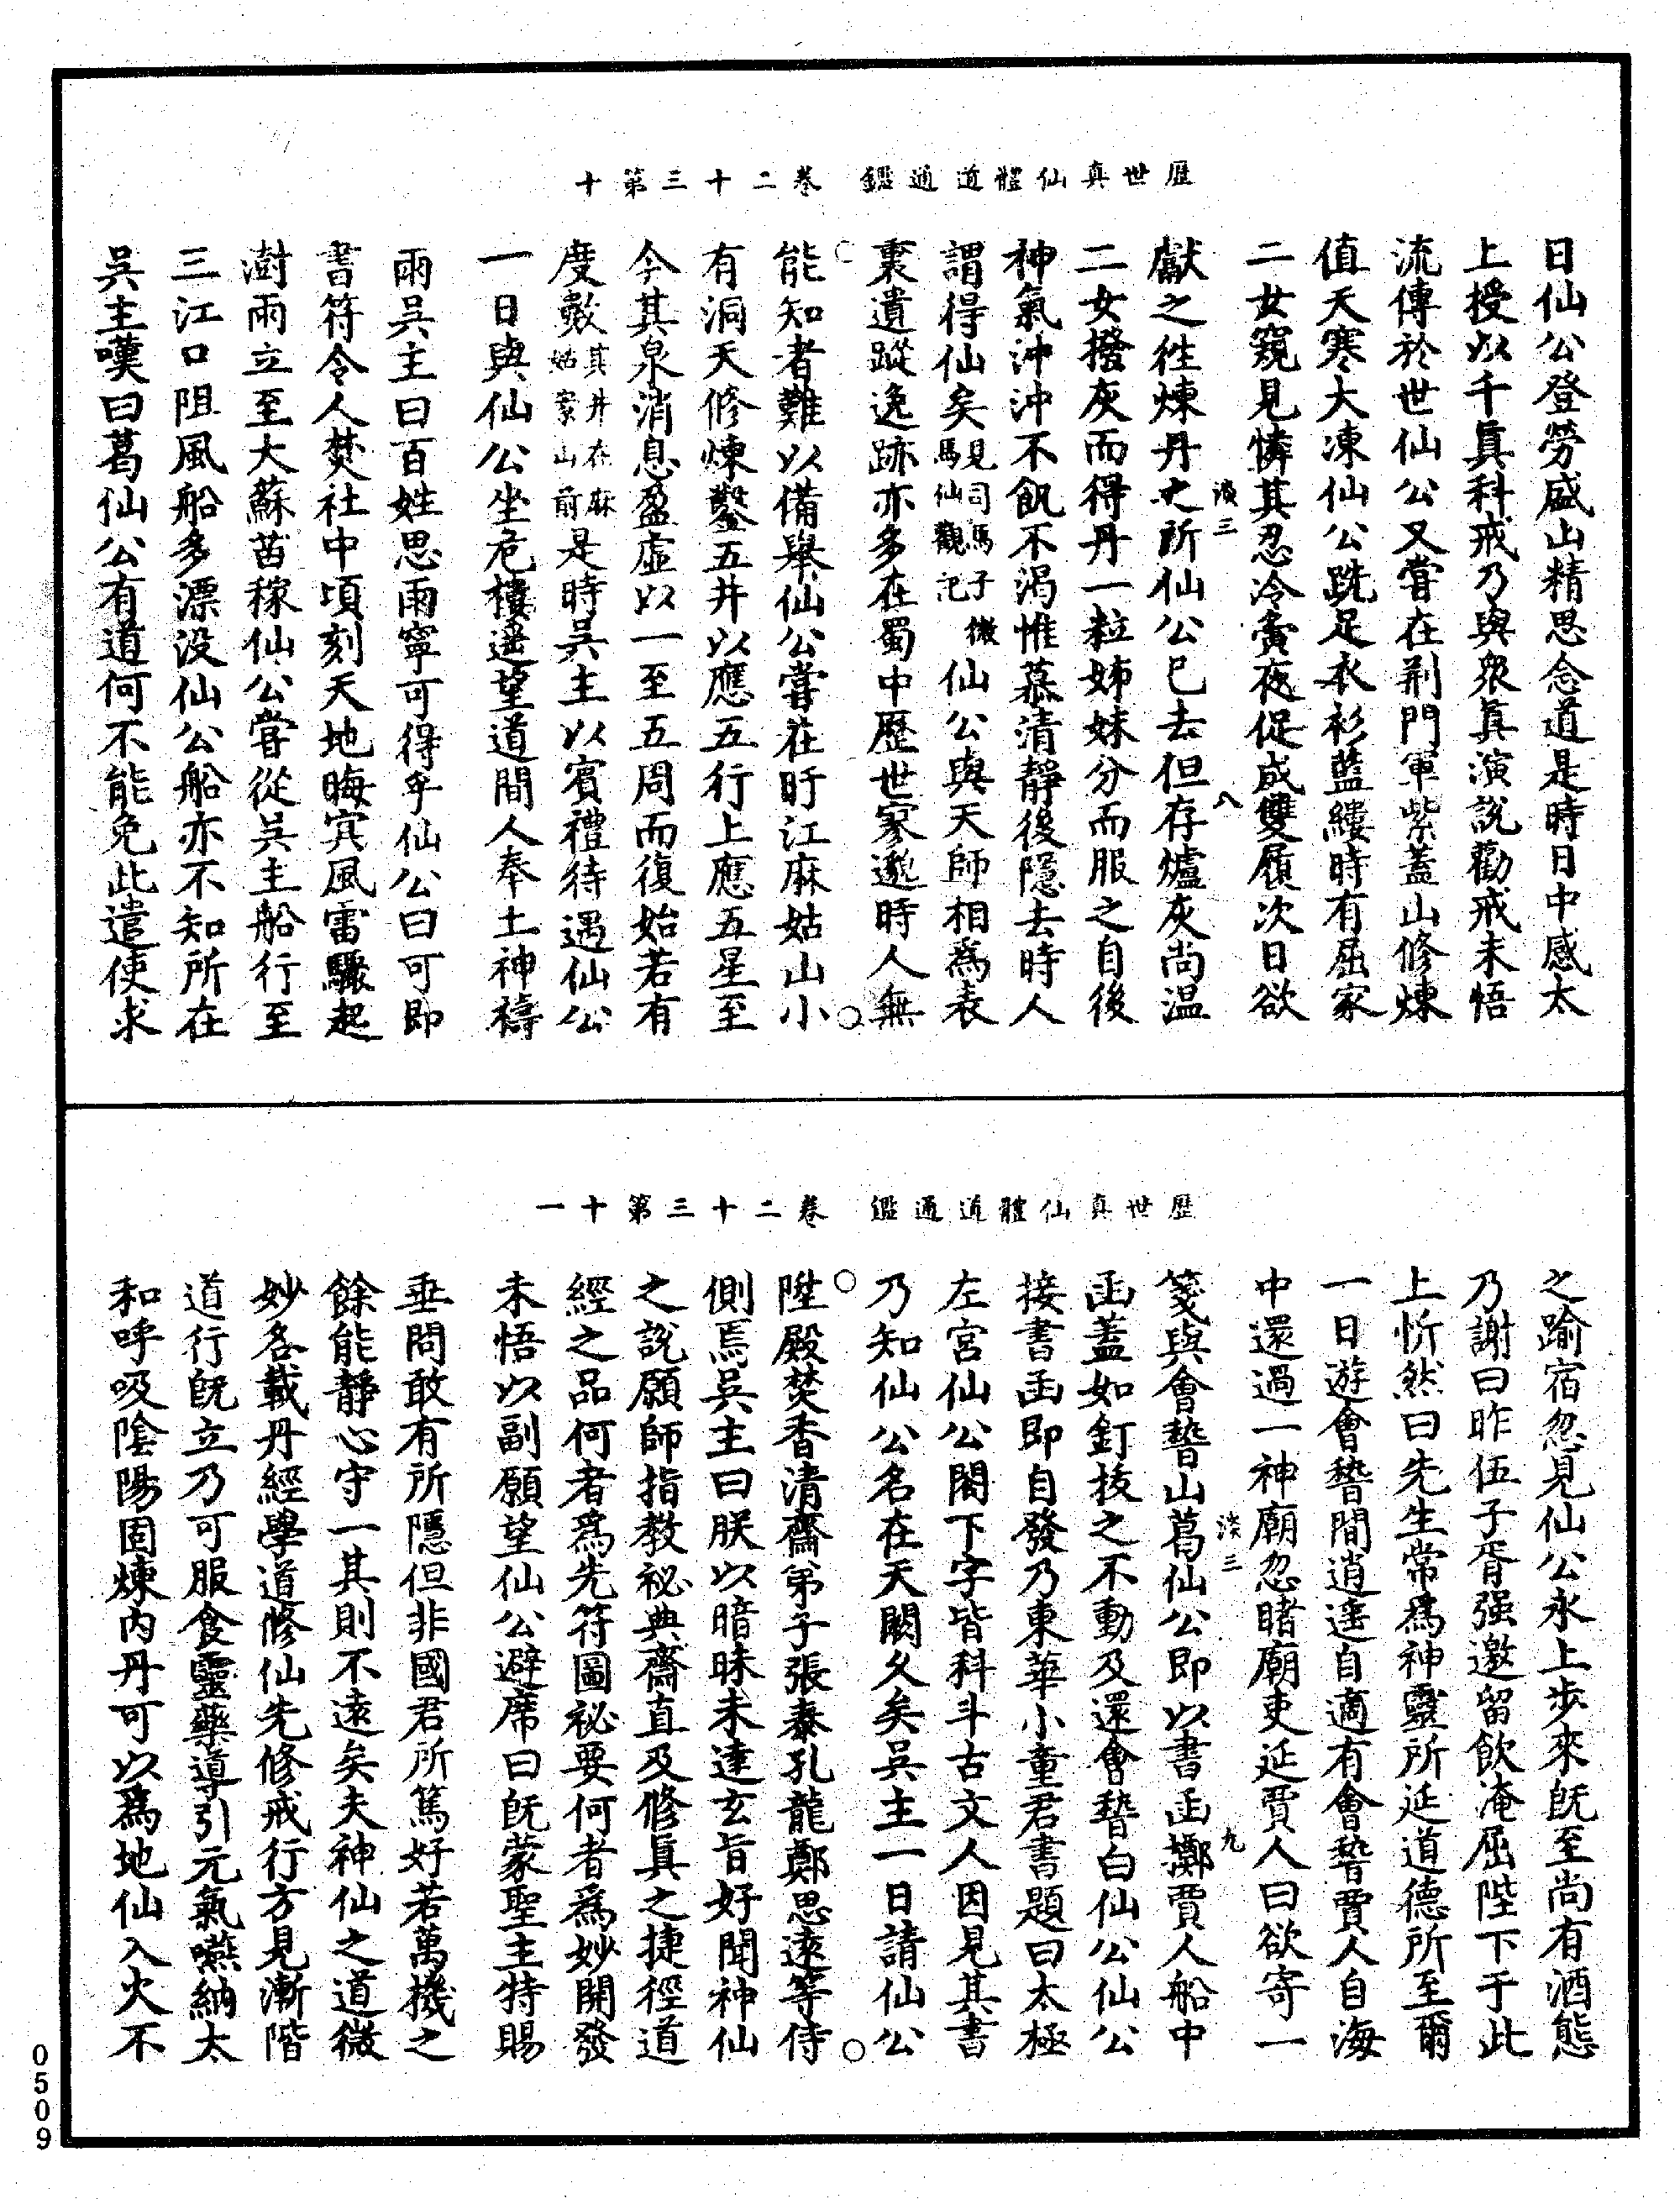 歷世真仙體道通鑑　卷二十三第十
日仙公登勞盛山精思念道是時日中感太
上授以千眞科戒乃與衆眞演說勸戒未悟
流傳於世仙公又嘗在荆門軍紫蓋山修煉
值天寒大凍仙公跣足衣衫藍縷時有屈家
二女窺見憐其忍冷賫夜促成雙履次日欲
淡三　八
獻之徃煉丹之所仙公已去但存爐灰尚温
二女撥灰而得丹一粒姊妹分而服之自後
神氣沖沖不飢不渴惟慕清靜後隱去時人
謂得仙矣見司馬子微馬仙觀記仙公與天師相爲表
裏遺蹤逸跡亦多在蜀中歷世寥邈時人無
能知者難以備舉仙公嘗在盱江麻姑山小
有洞天修煉鑿五井以應五行上應五星至
今其泉消息盈虛以一至五周而復始若有
度數其井在麻姑家山前是時吳主以賓禮待遇仙公
一日與仙公坐危樓遥望道間人奉土神禱
雨吳主曰百姓思雨寧可得乎仙公曰可即
書符令人焚社中頃刻天地晦㝠風雷驟起
澍雨立至大蘇苗稼仙公嘗從吳主船行至
三江口阻風船多漂没仙公船亦不知所在
吳主嘆曰葛仙公有道何不能免此遣使求
歷世真仙體道通鑑　卷二十三第十一
之踰宿忽見仙公氷上步來旣至尚有酒態
乃謝曰昨伍子胥强邀留飲淹屈陛下于此
上忻然曰先生常爲神靈所延道德所至爾
一日遊會稽間逍遥自適有會稽賈人自海
中還過一神廟忽睹廟吏延賈人曰欲寄一
淡三　九
箋與會稽山葛仙公即以書函擲賈人船中
函蓋如釘拔之不動及還會稽白仙公仙公
接書函即自發乃東華小童君書題曰太極
左宮仙公閣下字皆科斗古文人因見其書
乃知仙公名在天闕久矣吳主一日請仙公
陞殿焚香清齋弟子張泰孔龍鄭思遠等侍
側焉吳主曰朕以暗昧未達玄旨好聞神仙
之說願師指教祕典齋直及修眞之捷徑道
經之品何者爲先符圖祕要何者爲妙開發
未悟以副願望仙公避席曰旣蒙聖主特賜
垂問敢有所隱但非國君所篤好若萬機之
餘能靜心守一其則不遠矣夫神仙之道微
妙各載丹經學道修仙先修戒行方見漸階
道行旣立乃可服食靈藥導引元氣嚥納太
和呼吸陰陽固煉內丹可以爲地仙入火不
0509